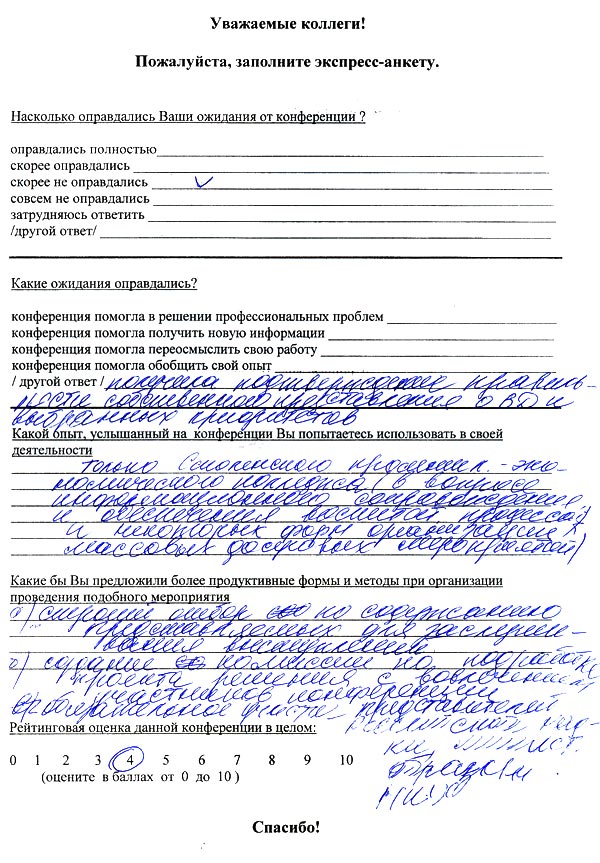 Уважаемые коллеги!
Пожалуйста, заполните экспресс-анкету.
Насколько оправдались Ваши ожидания от конференции ?
оправдались полностью
скорее оправдались
скорее не оправдались ✓
совсем не оправдались
затрудняюсь ответить
/другой ответ/
Какие ожидания оправдались?
конференция помогла в решении профессиональных проблем
конференция помогла получить новую информации
конференция помогла переосмыслить свою работу
конференция помогла обобщить свой опыт
/ другой ответ / получила подтверждение правиль-
ности собственного представления о ВД и
выбранных приоритетов
Какой опыт, услышанный на конференции Вы попытаетесь использовать в своей
деятельности
только Смоленского промышл. - эко-
номического колледжа (в вопросе
информационного сопровождения
и обеспечения воспитат. процесса)
и некоторых форм организации
массовых досуговых мероприятий)
Какие бы Вы предложили более продуктивные формы и методы при организации
проведения подобного мероприятия
а) строгий отбор по содержанию
представляемых для заслушив-
ания выступлений
2) создание комиссии по подработке
проекта решения с вовлечением
участников конференции
обязательное участ. представителей
Рейтинговая оценка данной конференции в целом:
науки, минист.
образом
0 1 2 3 4 5 6 7 8 9 10
(оцените в баллах от 0 до 10 )
Спасибо!